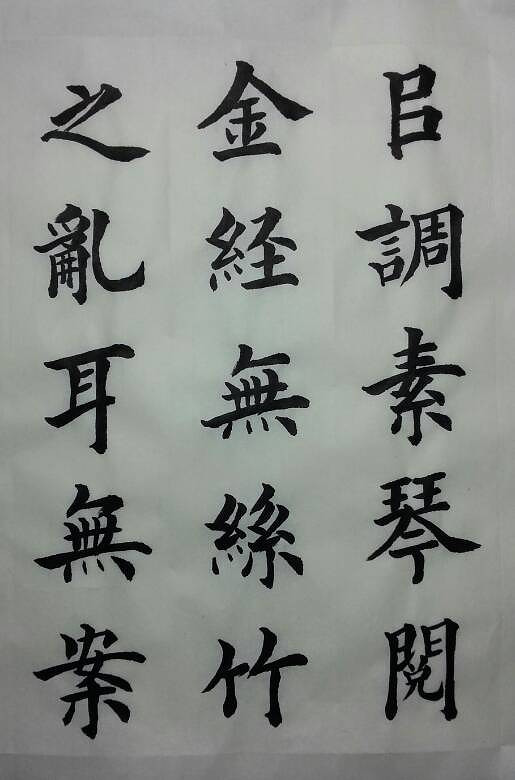 㠯調素琴閱
金経無絲竹
之亂耳無案